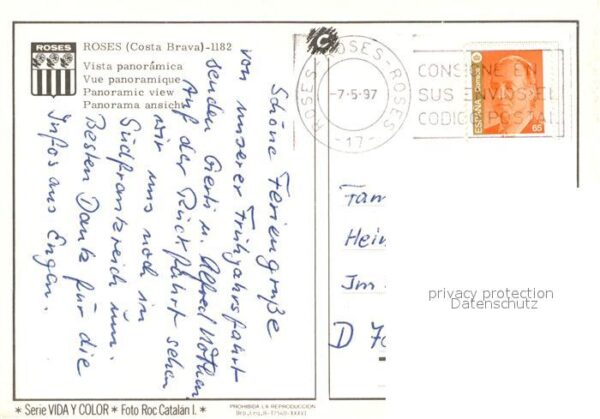 ROSES
ROSES (Costa Brava)-1182
Vista panorámica
Vue panoramique
Panoramic view
Panorama ansicht
Schöne Feriengrüße
von unserer Frühjahrsfahrt
senden Gerti u. Alfred
Auf der Rückfahrt sehen
wir uns noch in
Südfrankreich um.
Besten Dank für die
Infos aus Engen.
ROSES-ROSES-ROSES
-7-5-97
-17-
CONSIGNE EN
SUS ENVIOS EL
CODIGO POSTAL
ESPAÑA
CORREOS
65
Fam
Hein
Im
D 7
privacy protection
Datenschutz
* Serie VIDA Y COLOR * Foto Roc Catalán I. *
PROHIBIDA LA REPRODUCCION